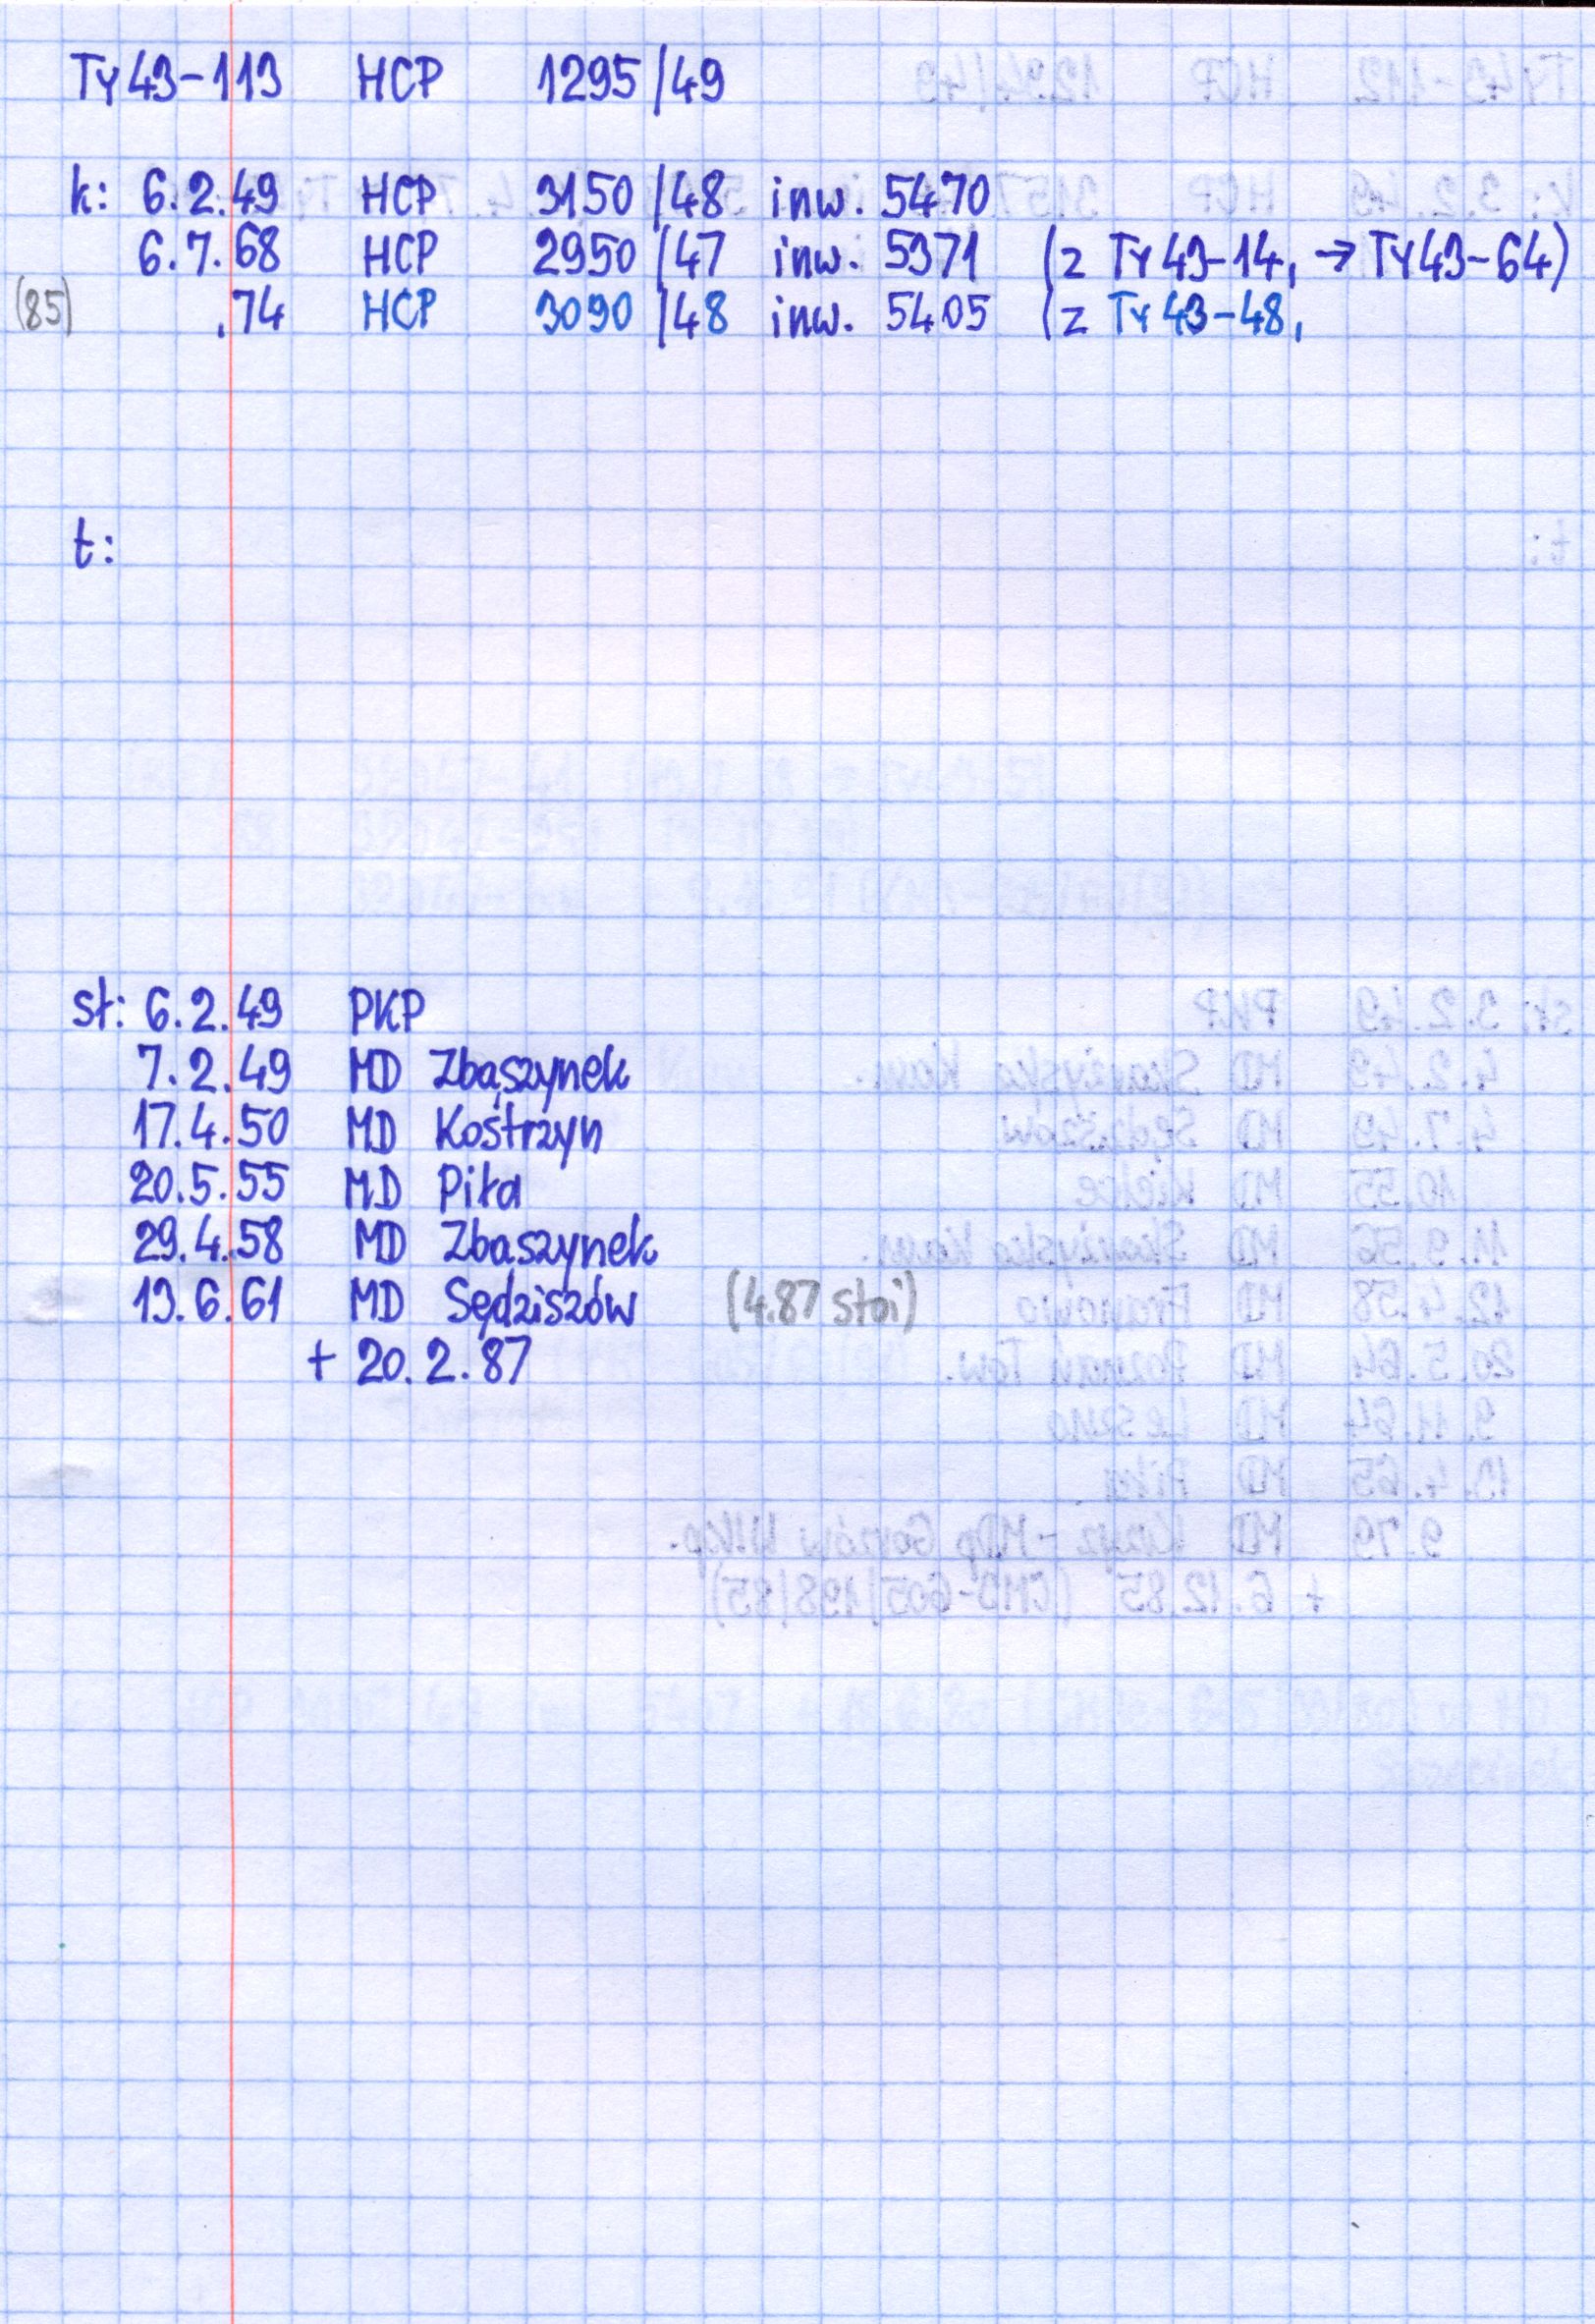 Ty43-113 HCP 1295/49
k: 6.2.49 HCP 3150/48 inw. 5470
6.7.68 HCP 2950/47 inw. 5371 (z Ty43-14, → Ty43-64)
(85) .74 HCP 3090/48 inw. 5405 (z Ty43-48,
t:
st: 6.2.49 PKP
7.2.49 MD Zbąszynek
17.4.50 MD Kostrzyn
20.5.55 MD Piła
29.4.58 MD Zbąszynek
13.6.61 MD Sędziszów (4.87 stoi)
+ 20.2.87